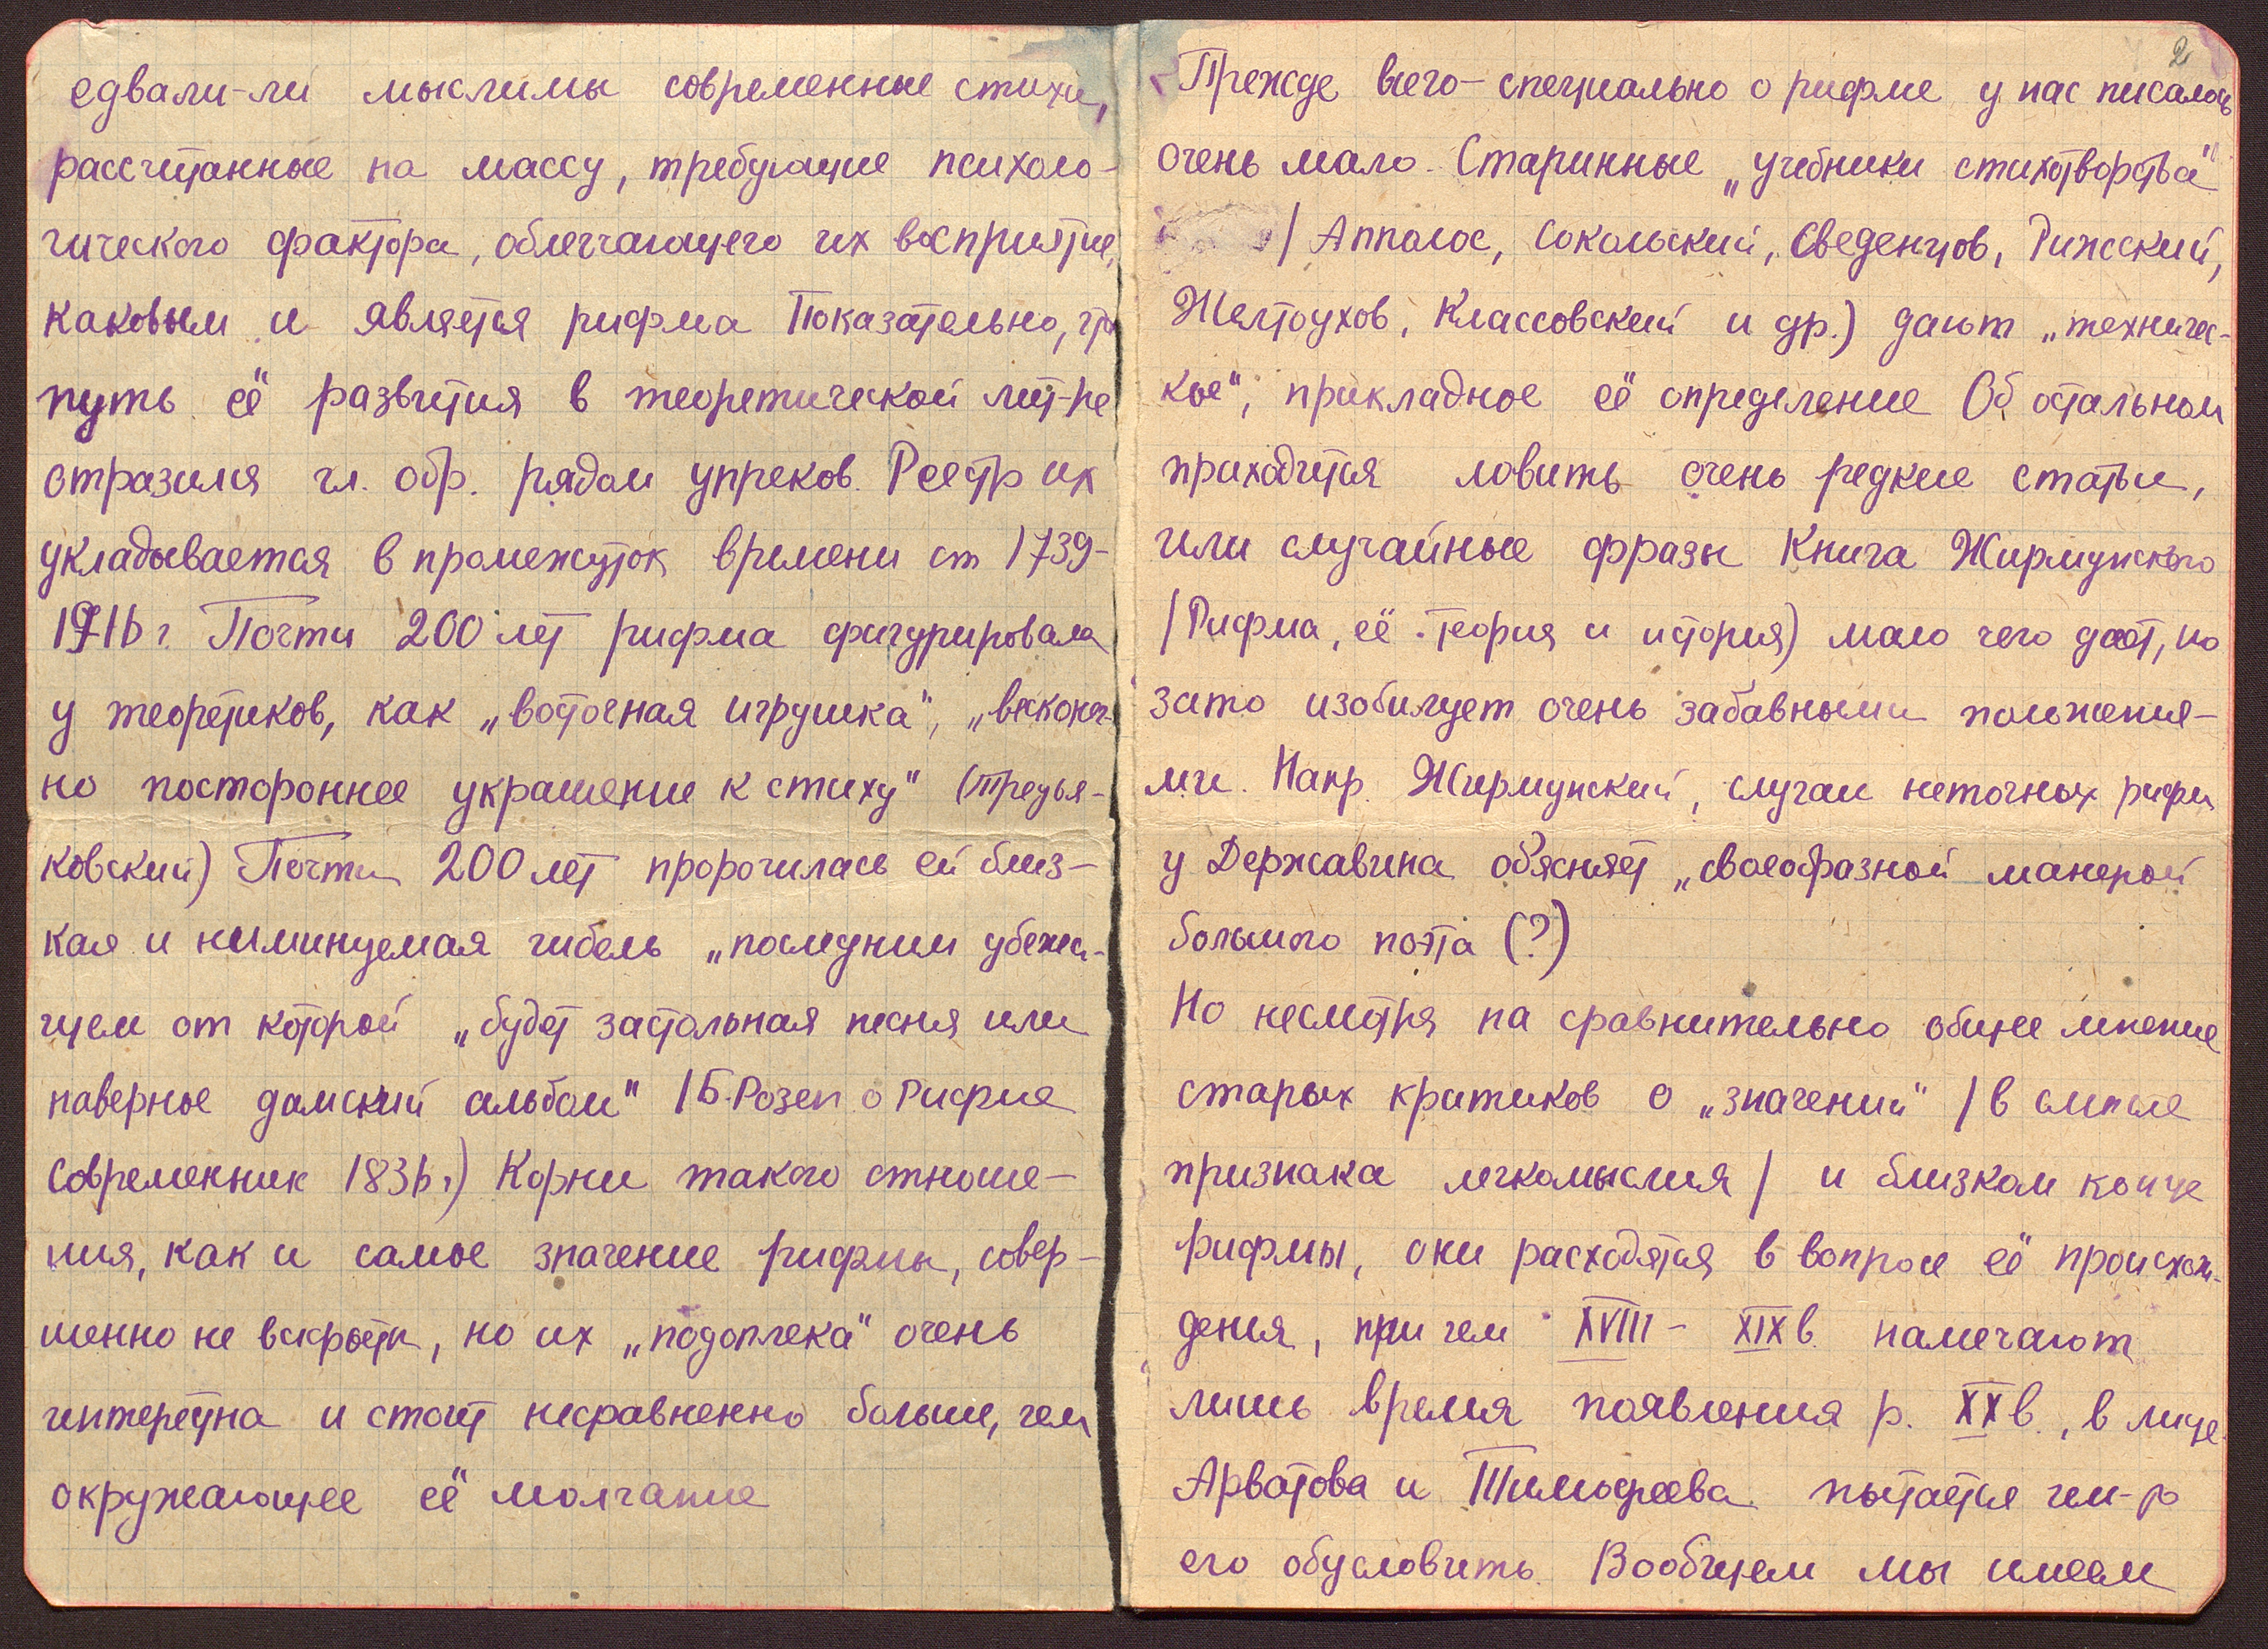 едвали-ли мыслимы современные стихи,
рассчитанные на массу, требующие психоло-
гического фактора, облегчающего их восприятие,
каковым и является рифма Показательно, что
путь её развития в теоретической лит-ре
отразился гл. обр. рядом упреков. Реестр их
укладывается в промежуток времени от 1739-
1916 г Почти 200 лет рифма фигурировала
у теоретиков, как „восточная игрушка“, „вконеч-
но постороннее украшение к стиху“ (Тредья-
ковский) Почти 200 лет пророчилась ей близ-
кая и неминуемая гибель „последним убежи-
щем от которой „будет застольная песня или
наверное дамский альбом“ /Б. Розен о Рифме
Современник 1836 г) Корни такого отноше-
ния, как и самое значение рифмы, совер-
шенно не вскрыты, но их „подоплека“ очень
интересна и стоит несравненно больше, чем
окружающее её молчание
2
Прежде всего - специально о рифме у нас писалось
очень мало. Старинные „учебники стихотворства“
/ Апполос, Сокольский, Сведенцов, Рижский,
Желтоухов, Классовский и др.) дают „техничес-
кое“, прикладное её определение Об остальном
приходится ловить очень редкие статьи,
или случайные фразы Книга Жирмунского
/ Рифма, её теория и история) мало чего дает, но
зато изобилует очень забавными положения-
ми. Напр. Жирмунский, случаи неточных рифм
у Державина об'ясняет „своеобразной манерой
большого поэта (?)
Но несмотря на сравнительно общее мнение
старых критиков о „значении“ / в смысле
признака легкомыслия / и близком конце
рифмы, они расходятся в вопросе её происхож-
дения, при чем XVIII - XIX в. намечают
лишь время появления р. XX в., в лице
Арватова и Тимофеева пытается чем-то
его обусловить. Вообщем мы имеем